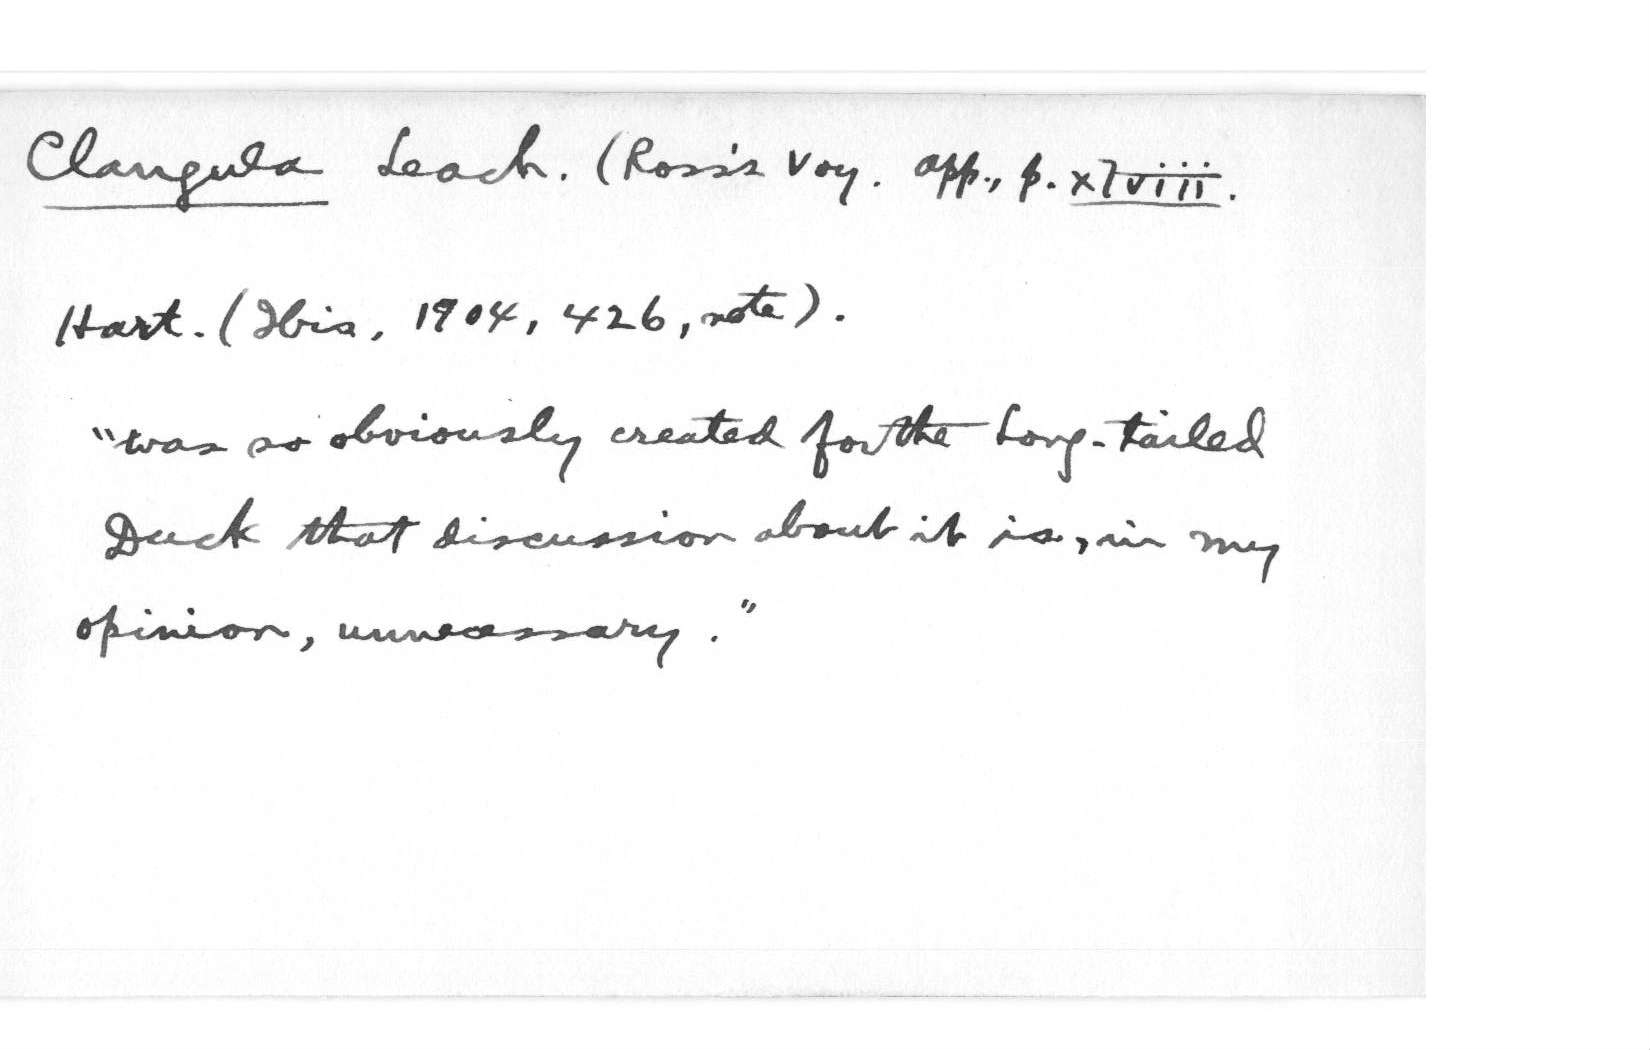 Clangula Leach. (Ross's Voy. app., p. xlviii.
Hart. (Ibis, 1904, 426, note).
"was so obviously created for the Long-tailed
Duck that discussion about it is, in my
opinion, unnecessary."